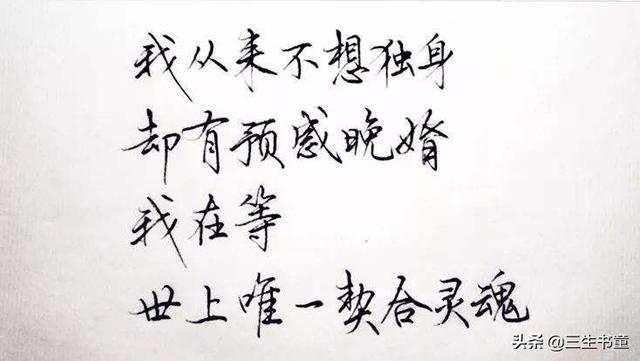 我从来不想独身
却有预感晚婚
我在等
世上唯一契合灵魂
头条 @三生书童